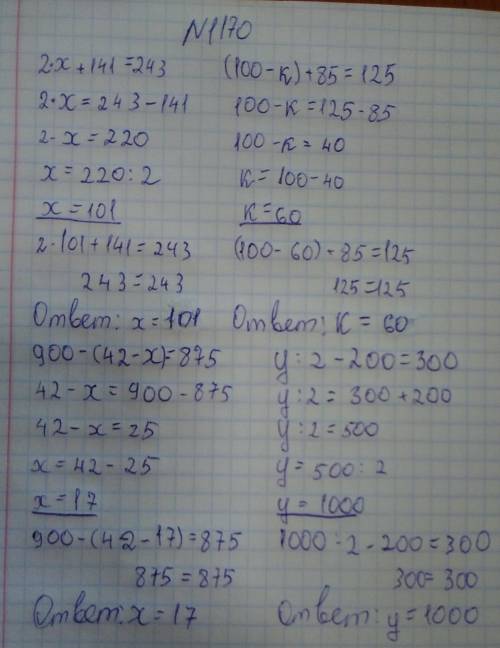 N1170
2·x+141=243
2·x=243-141
2·x=220
x=220:2
x=101
2·101+141=243
243=243
Ответ: x=101
(100-к)+85=125
100-к=125-85
100-к=40
к=100-40
к=60
(100-60)-85=125
125=125
Ответ: к=60
900-(42-x)=875
42-x=900-875
42-x=25
x=42-25
x=17
900-(42-17)=875
875=875
Ответ: x=17
y:2-200=300
y:2=300+200
y:2=500
y=500:2
y=1000
1000:2-200=300
300=300
Ответ: y=1000